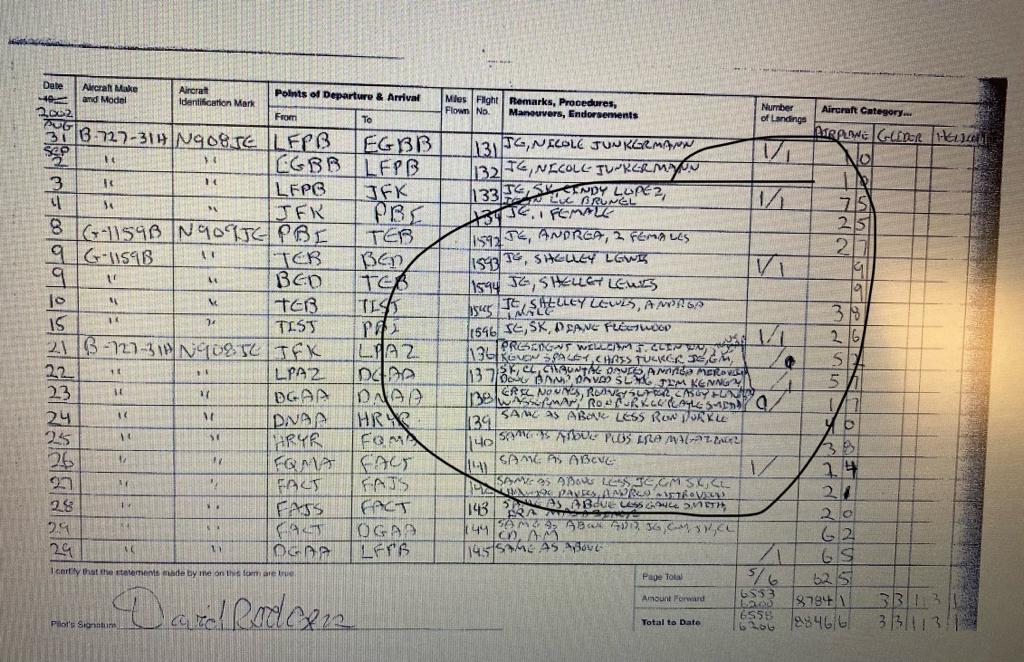 Date Aircraft Make and Model Aircraft Identification Mark Points of Departure & Arrival From To Miles Flown Flight No. Remarks, Procedures, Maneuvers, Endorsements Number of Landings Aircraft Category...
2002 AIRPLANE GLIDER
AUG 31 B-727-31H N908JE LFPB EGBB 131 JE, NICOLE JUNKERMANN 1/1
SEP 2 " " EGBB LFPB 132 JE, NICOLE JUNKERMANN
3 " " LFPB JFK 133 JE, SK, CINDY LOPEZ, JEAN LUC BRUNEL 1/1 7 5
4 " " JFK PBI 134 JE, 1 FEMALE 2 5
8 G-1159B N909JE PBI TEB 1592 JE, ANDREA, 2 FEMALES 2
9 G-1159B " TEB BED 1593 JE, SHELLEY LEWIS 1/1
9 " " BED TEB 1594 JE, SHELLEY LEWIS 9
10 " " TEB TIST JE, SHELLEY LEWIS, ANDREA 3 8
15 " " TIST PBI 1596 JE, SK, DIANE FLEETWOOD 1/1 2 6
21 B-727-31H N908JE JFK LPAZ 136 PRESIDENT WILLIAM J. CLINTON, KEVIN SPACEY, CHRIS TUCKER, JE, GM, 5
22 " " LPAZ DGAA 137 SK, CL, CHAUNTAE DAVIES, ANDREA DOUG BAND, DAVID JIM KENNEZ 5
23 " " DGAA DNAA 138 ERIC RODNEY SLATER, CASEY WASSERMAN, RON BURKLE 1 7
24 " " DNAA HRYR 139 SAME AS ABOVE LESS RON BURKLE
25 " " HRYR FQMA 140 SAME AS ABOVE PLUS IRA MAGAZINER 3 8
26 " " FQMA FACT 141 SAME AS ABOVE 1/ 2 4
27 " " FACT FAJS SAME AS ABOVE LESS JE, GM, SK, CL CHAUNTAE DAVIES, ANDREA 2
28 " " FAJS FACT 143 SAME AS ABOVE LESS SMITH, 2 0
29 " " FACT DGAA 144 SAME AS ABOVE ADD JE, GM, SK, CL CD, AM 6 2
29 " " DGAA LFPB 145 SAME AS ABOVE /1 6 5
I certify that the statements made by me on this form are true. Page Total 5/6 62 5
Amount Forward 6553 6200 8784 1 3 3 1 1 3 1
Pilot's Signature David Rodgers Total to Date 6558 6206 8846 6 3 3 1 1 3 1